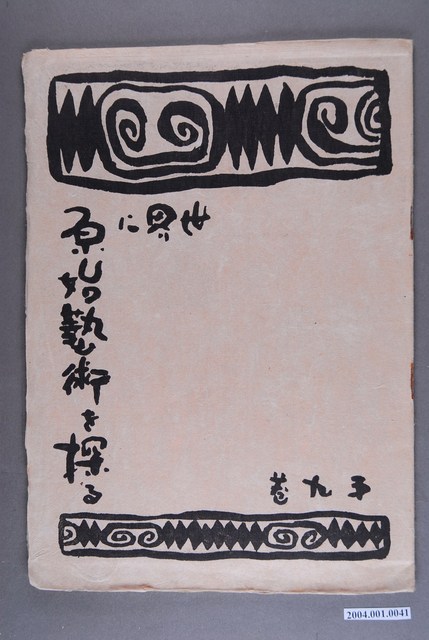 世界に
原始藝術を探る
第九巻
2004.001.0041